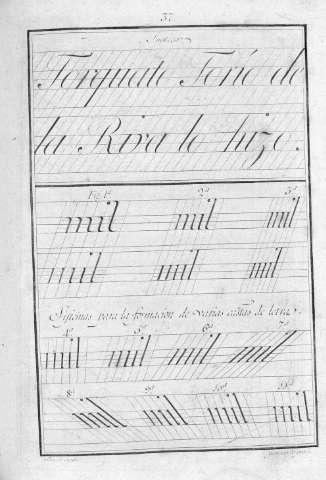 37
Torquato Torío de
la Riva lo hizo.
Fig. 1ª 2ª 3ª
mil mil mil
mil mil mil
Sistemas para la formacion de varias castas de letra.
4ª 5ª 6ª 7ª
mil mil mil mil
8ª 9ª 10ª 11ª
mil mil mil mil